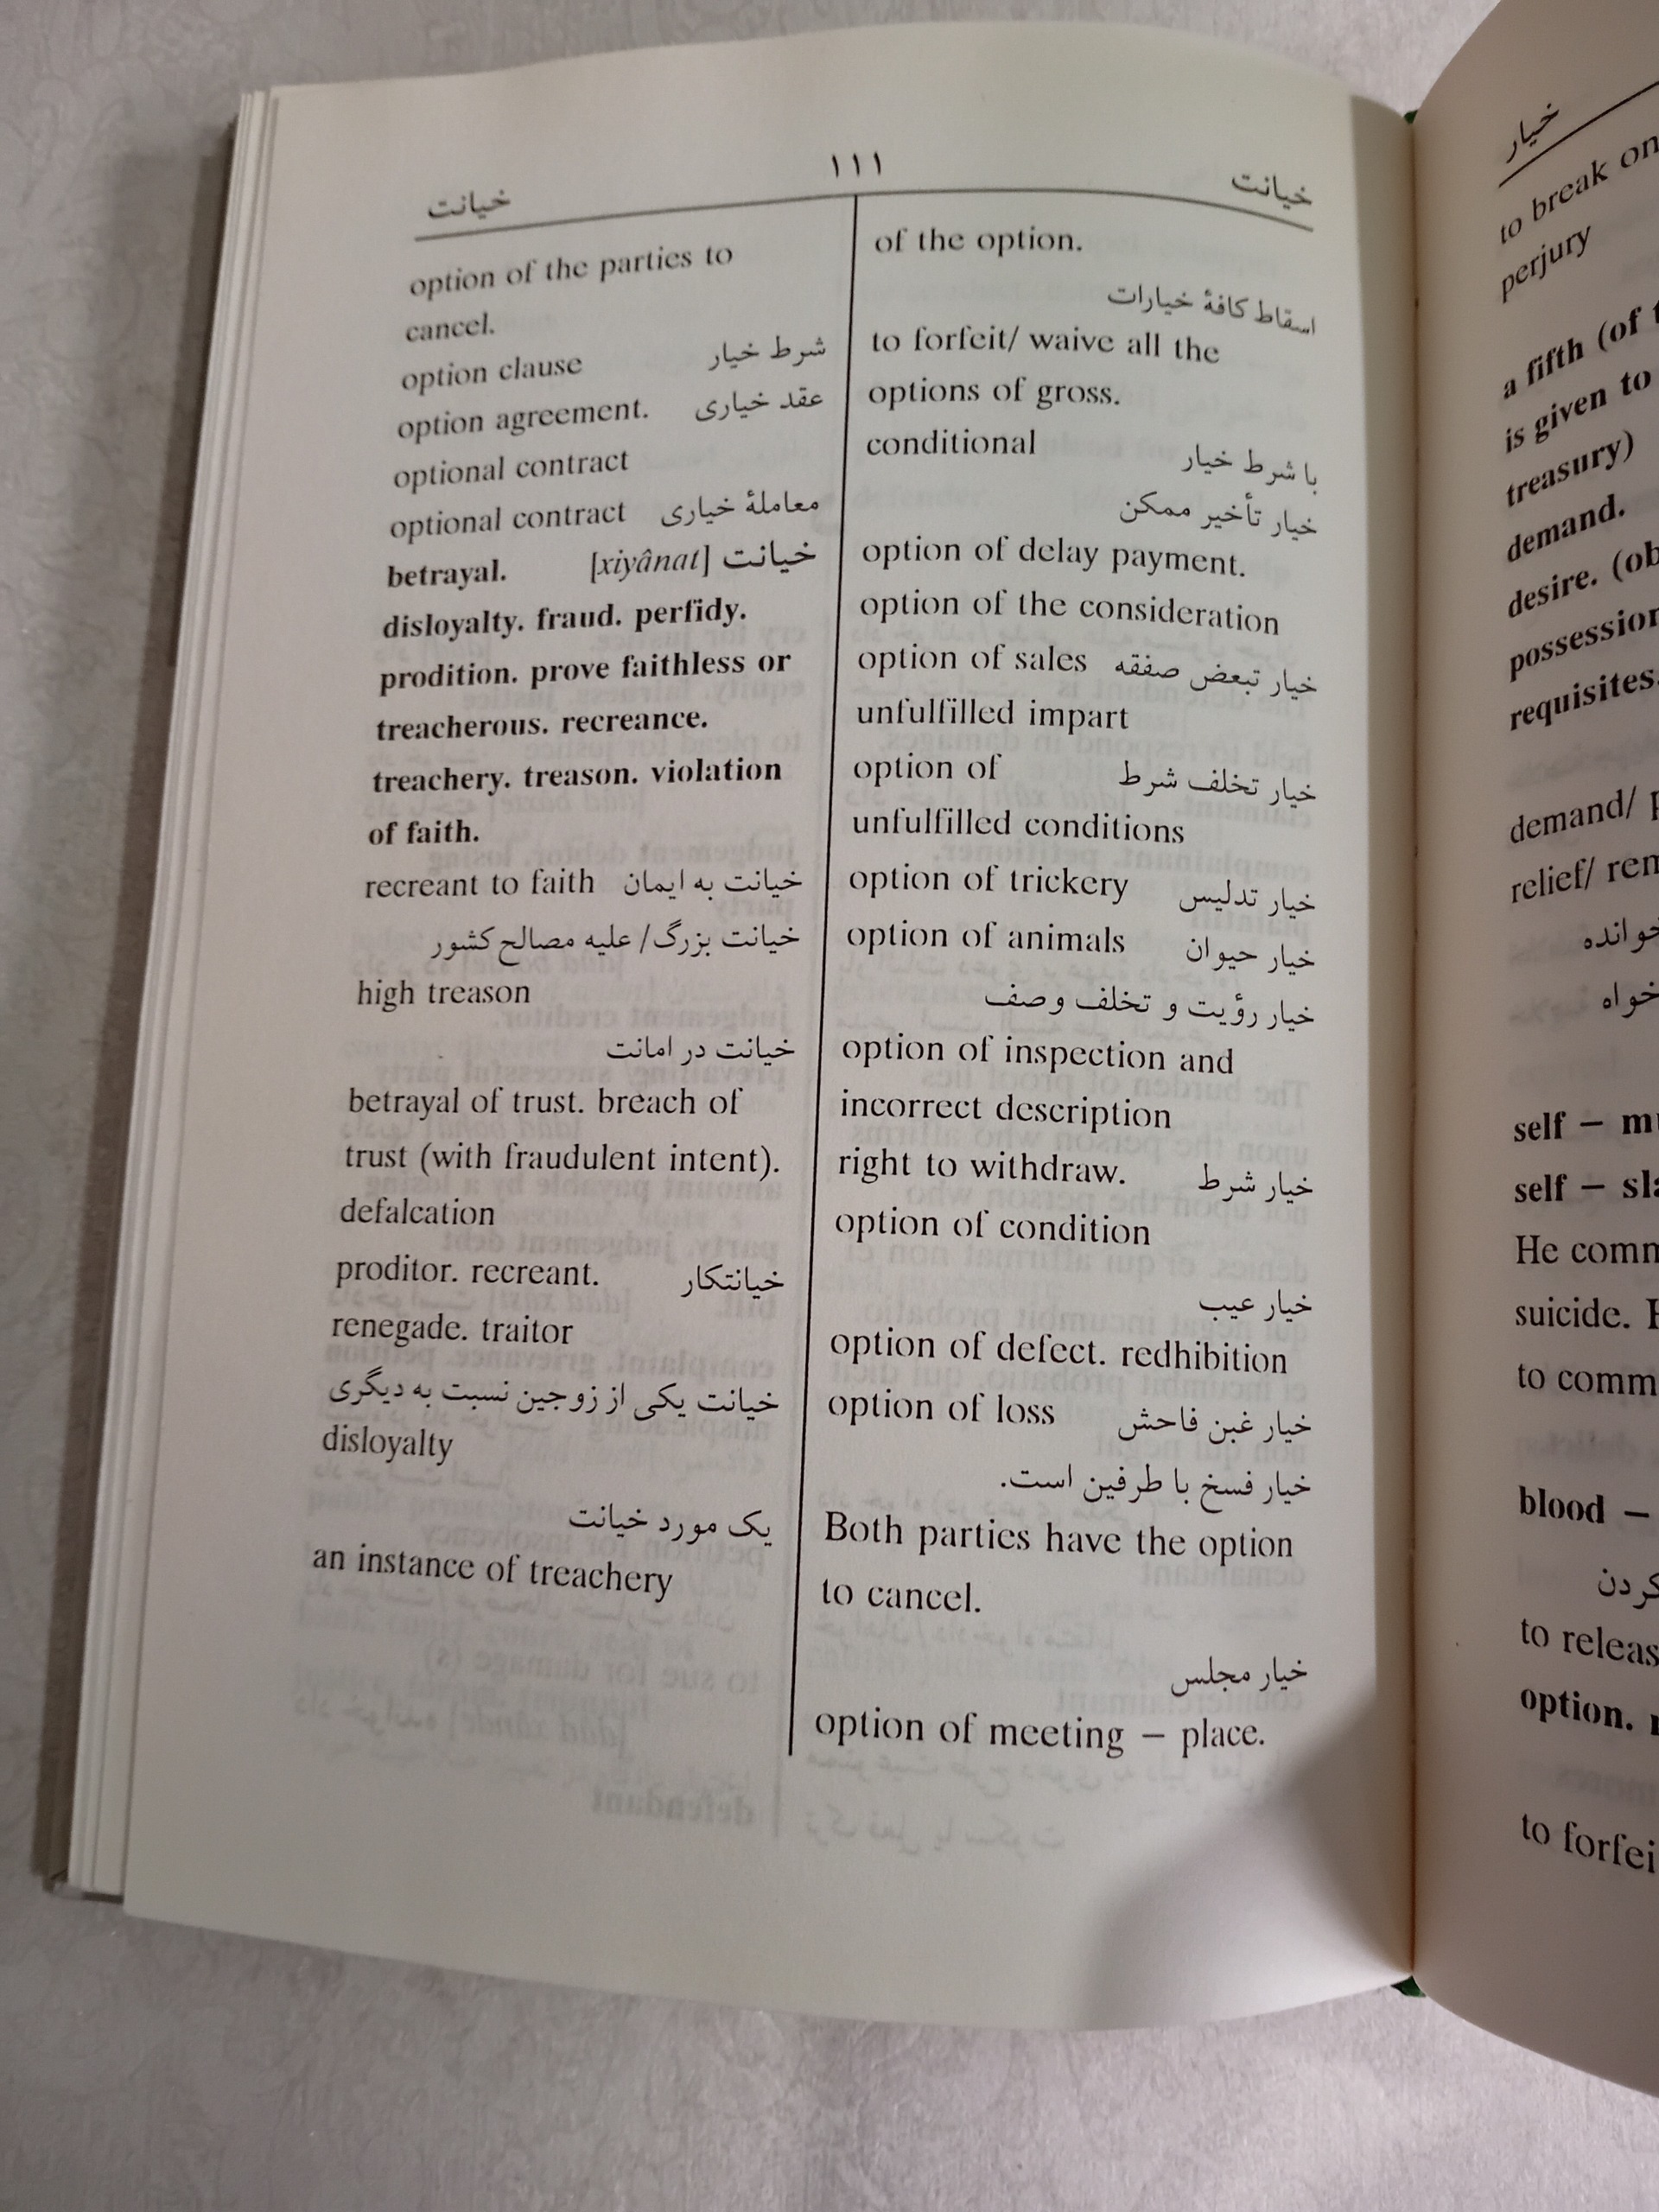 خیانت
۱۱۱
خیانت
of the option.
اسقاط کافهٔ خیارات
to forfeit/ waive all the
options of gross.
conditional با شرط خیار
خیار تأخیر ممکن
option of delay payment.
option of the consideration
option of sales خیار تبعض صفقه
unfulfilled impart
option of خیار تخلف شرط
unfulfilled conditions
option of trickery خیار تدلیس
option of animals خیار حیوان
خیار رؤیت و تخلف وصف
option of inspection and
incorrect description
right to withdraw. خیار شرط
option of condition
خیار عیب
option of defect. redhibition
option of loss خیار غبن فاحش
خیار فسخ با طرفین است.
Both parties have the option
to cancel.
خیار مجلس
option of meeting – place.
option of the parties to
cancel.
option clause شرط خیار
option agreement. عقد خیاری
optional contract
optional contract معاملهٔ خیاری
betrayal. [xiyânat] خیانت
disloyalty. fraud. perfidy.
prodition. prove faithless or
treacherous. recreance.
treachery. treason. violation
of faith.
recreant to faith خیانت به ایمان
خیانت بزرگ/ علیه مصالح کشور
high treason
خیانت در امانت
betrayal of trust. breach of
trust (with fraudulent intent).
defalcation
proditor. recreant. خیانتکار
renegade. traitor
خیانت یکی از زوجین نسبت به دیگری
disloyalty
یک مورد خیانت
an instance of treachery
خیار
to break on
perjury
a fifth (of
is given to
treasury)
demand.
desire. (ob
possession
requisites.
demand/
relief/ rem
خوانده
خواه
self –
self –
He comm
suicide.
to comm
blood –
کردن
to releas
option.
to forfei